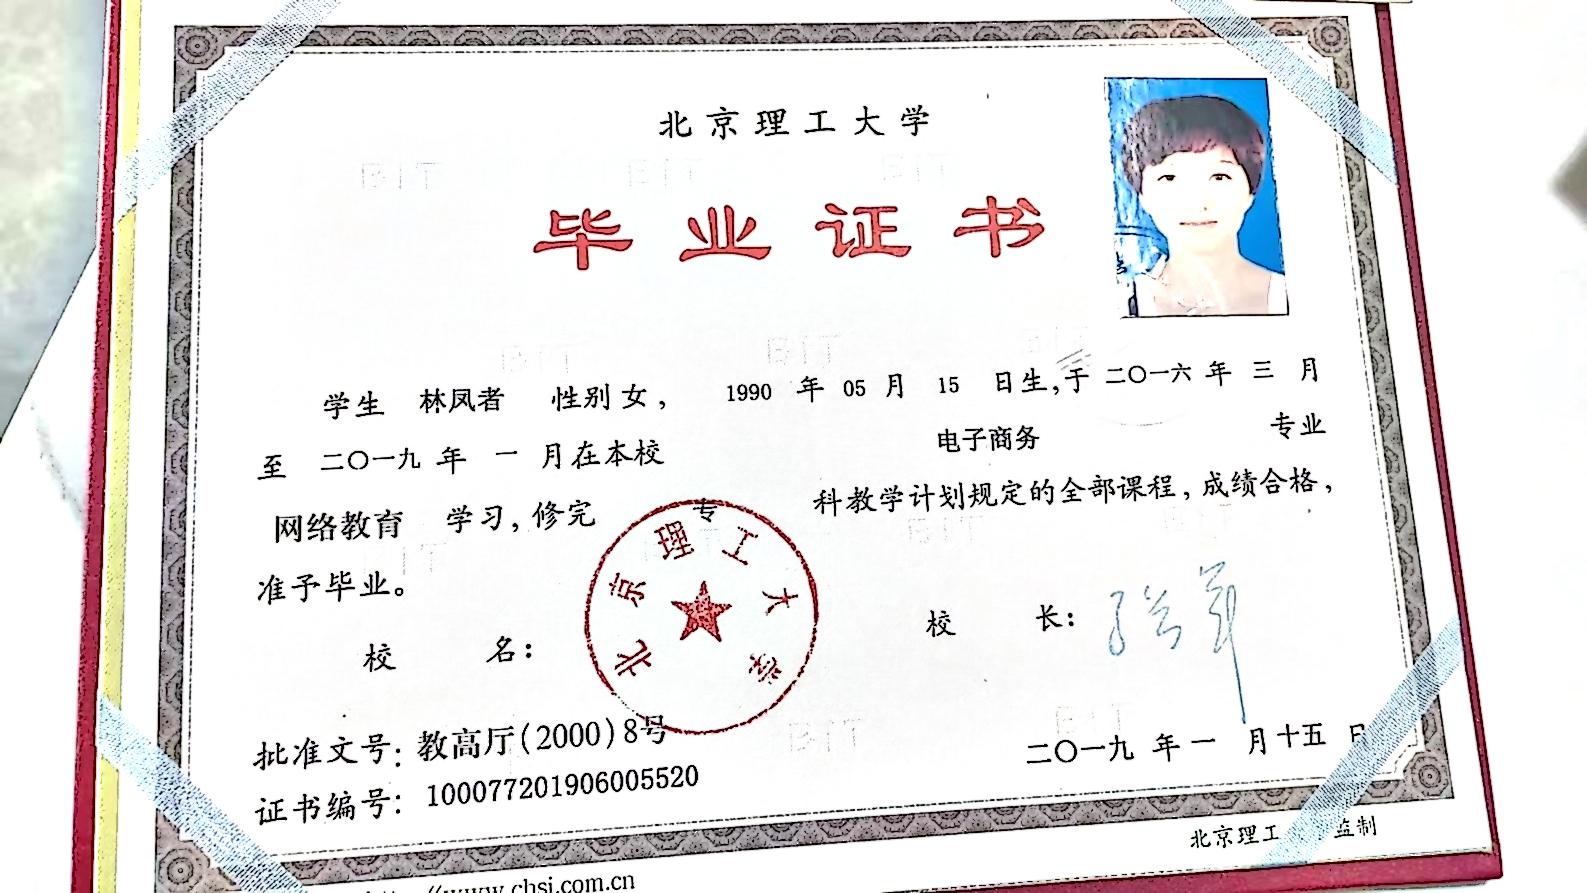 北京理工大学
毕业证书
学生 林凤者 性别 女， 1990 年 05 月 15 日生，于 二〇一六 年 三 月
至 二〇一九 年 一 月在本校 电子商务 专业
网络教育 学习，修完 专 科教学计划规定的全部课程，成绩合格，
准予毕业。
北京理工大学
校 名： 校 长：
批准文号：教高厅(2000)8号
二〇一九 年 一 月 十五 日
证书编号：100077201906005520
北京理工 监制
www.chsi.com.cn